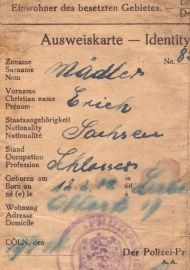 Einwohner des besetzten Gebietes.
Ausweiskarte — Identity
Zuname
Surname
Nom
Mädler
No. 8
Vorname
Christian name
Prénom
Erich
Staatsangehörigkeit
Nationality
Nationalité
Sachsen
Stand
Occupation
Profession
Schlosser
Geboren am
Born on
né (e) le
12.2.
in
at
à
Wohnung
Address
Domicile
19
CÖLN,
Der Polizei-Pr
A.A.